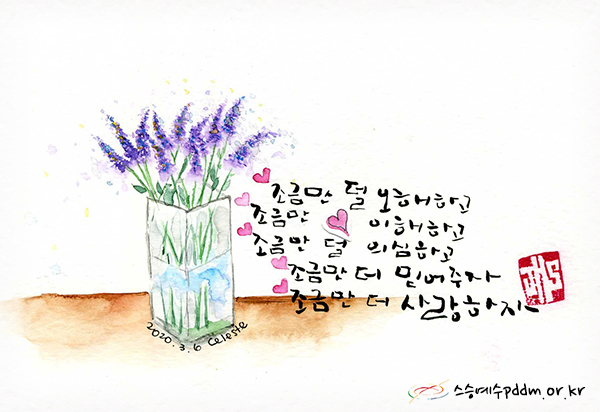 조금만 덜 오해하고
조금만 이해하고
조금만 덜 의심하고
조금만 더 믿어주자
조금만 더 사랑하자
2020.3.6 Celeste
스승예수pddm.or.kr